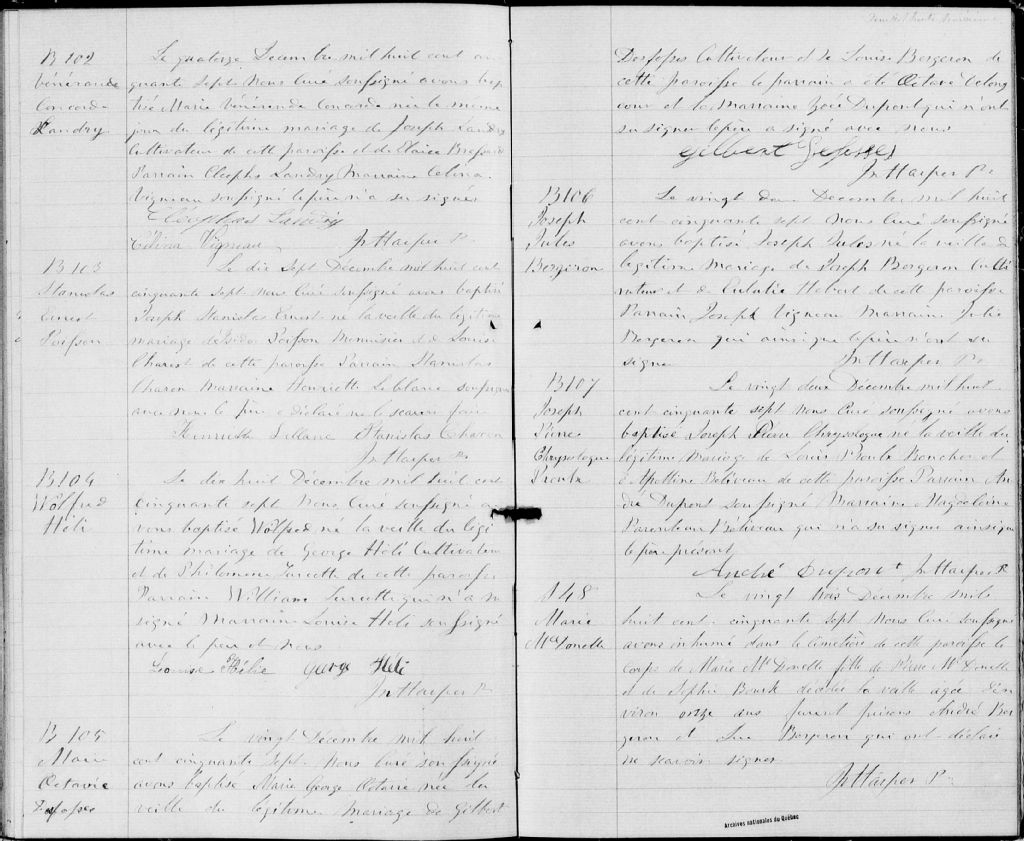 B 102
Vénérande
Concorde
Landry
Le quatorze Decembre mil huit cent cin
quante sept Nous Curé soussigné avons bap
tisé Marie Vénérende Concorde née le même
jour du légitime mariage de Joseph Landry
Cultivateur de cette paroisse et de
Parrain Cleophs Landry Marraine Celina
Vigneau soussigné le père n'a su signer
Cléophas Landry
Celina Vigneau JnHarper Pr
B 103
Stanislas
Ernest
Poisson
Le dix sept Décembre mil huit cent
cinquante sept Nous Curé soussigné avons baptisé
Joseph Stanislas Ernest né la veille du légitime
mariage de Isidor Poisson Menuisier et de Louise
Charest de cette paroisse Parrain Stanislas
Charon Marraine Henriette Leblanc soussignés
avec nous le père a déclaré ne le scavoir faire
Henriette Leblanc Stanislas Charon
JnHarper Pr
B 104
Wolfred
Héli
Le dix huit Décembre mil huit cent
cinquante sept Nous Curé soussigné a
vons baptisé Wolfred né la veille du légi
time mariage de George Héli Cultivateur
et de Philomene Turcotte de cette paroisse
Parrain William Turcotte qui n'a su
signé Marraine Louise Héli soussigné
avec le père et nous
Louise Hélie George Héli
JnHarper Pr
B 105
Marie
Octavie
Le vingt Décembre mil huit
cent cinquante sept Nous Curé soussigné
avons baptisé Marie George Octavie née la
veille du légitime mariage de Gilbert
Desfossés Cultivateur et de Louise Bergeron de
cette paroisse le parrain a été Octave
et la Marraine Zoée Dupont qui n'ont
su signer le père a signé avec nous
Gilbert
JnHarper Pr
B 106
Joseph
Jules
Bergeron
Le vingt deux Décembre mil huit
cent cinquante sept Nous Curé soussigné
avons baptisé Joseph Jules né la veille du
légitime Mariage de Joseph Bergeron Culti
vateur et de Eulalie Hebert de cette paroisse
Parrain Joseph Vigneau Marraine Julie
Bergeron qui ainsi que le père n'ont su
signer JnHarper Pr
B 107
Joseph
Pierre
Chrysologue
Proulx
Le vingt deux Décembre mil huit
cent cinquante sept Nous Curé soussigné avons
baptisé Joseph Pierre Chrysologue né la veille du
légitime Mariage de Louis Proulx Boucher et
d'Apolline Beliveau de cette paroisse Parrain An
dré Dupont soussigné Marraine Magdeleine
Parenteau Beliveau qui n'a su signer ainsi que
le père présent
André Dupont JnHarper Pr
148
Marie
Mc Donell
Le vingt trois Décembre mil
huit cent cinquante sept Nous Curé soussigné
avons inhumé dans le cimetière de cette paroisse le
corps de Marie Mc Donell fille de Pierre Mc Donell
et de Sophie Bourk décédée la veille agée d'en
viron onze ans furent présens André Ber
geron et Bergeron qui ont déclaré
ne scavoir signer
JnHarper Pr
Archives nationales du Québec